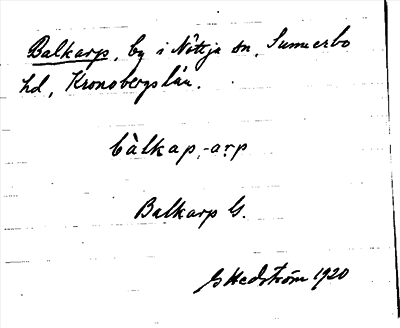 Balkarp, by i Nöttja sn, Sunnerbo
hd, Kronobergs län.
bàlkap, -arp
Balkarp G.
G Hedström 1920